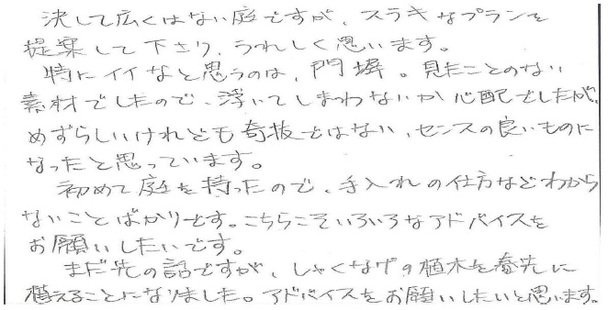 決して広くはない庭ですが、ステキなプランを
提案して下さり、うれしく思います。
特にイイなと思うのは、門塀。見たことのない
素材でしたので、浮いてしまわないか心配でしたが、
めずらしいけれども奇抜ではない、センスの良いものに
なったと思っています。
初めて庭を持ったので、手入れの仕方などわから
ないことばかりです。こちらこそいろいろなアドバイスを
お願いしたいです。
まだ先の話ですが、しゃくなげの植木を春先に
植えることになりました。アドバイスをお願いしたいと思います。